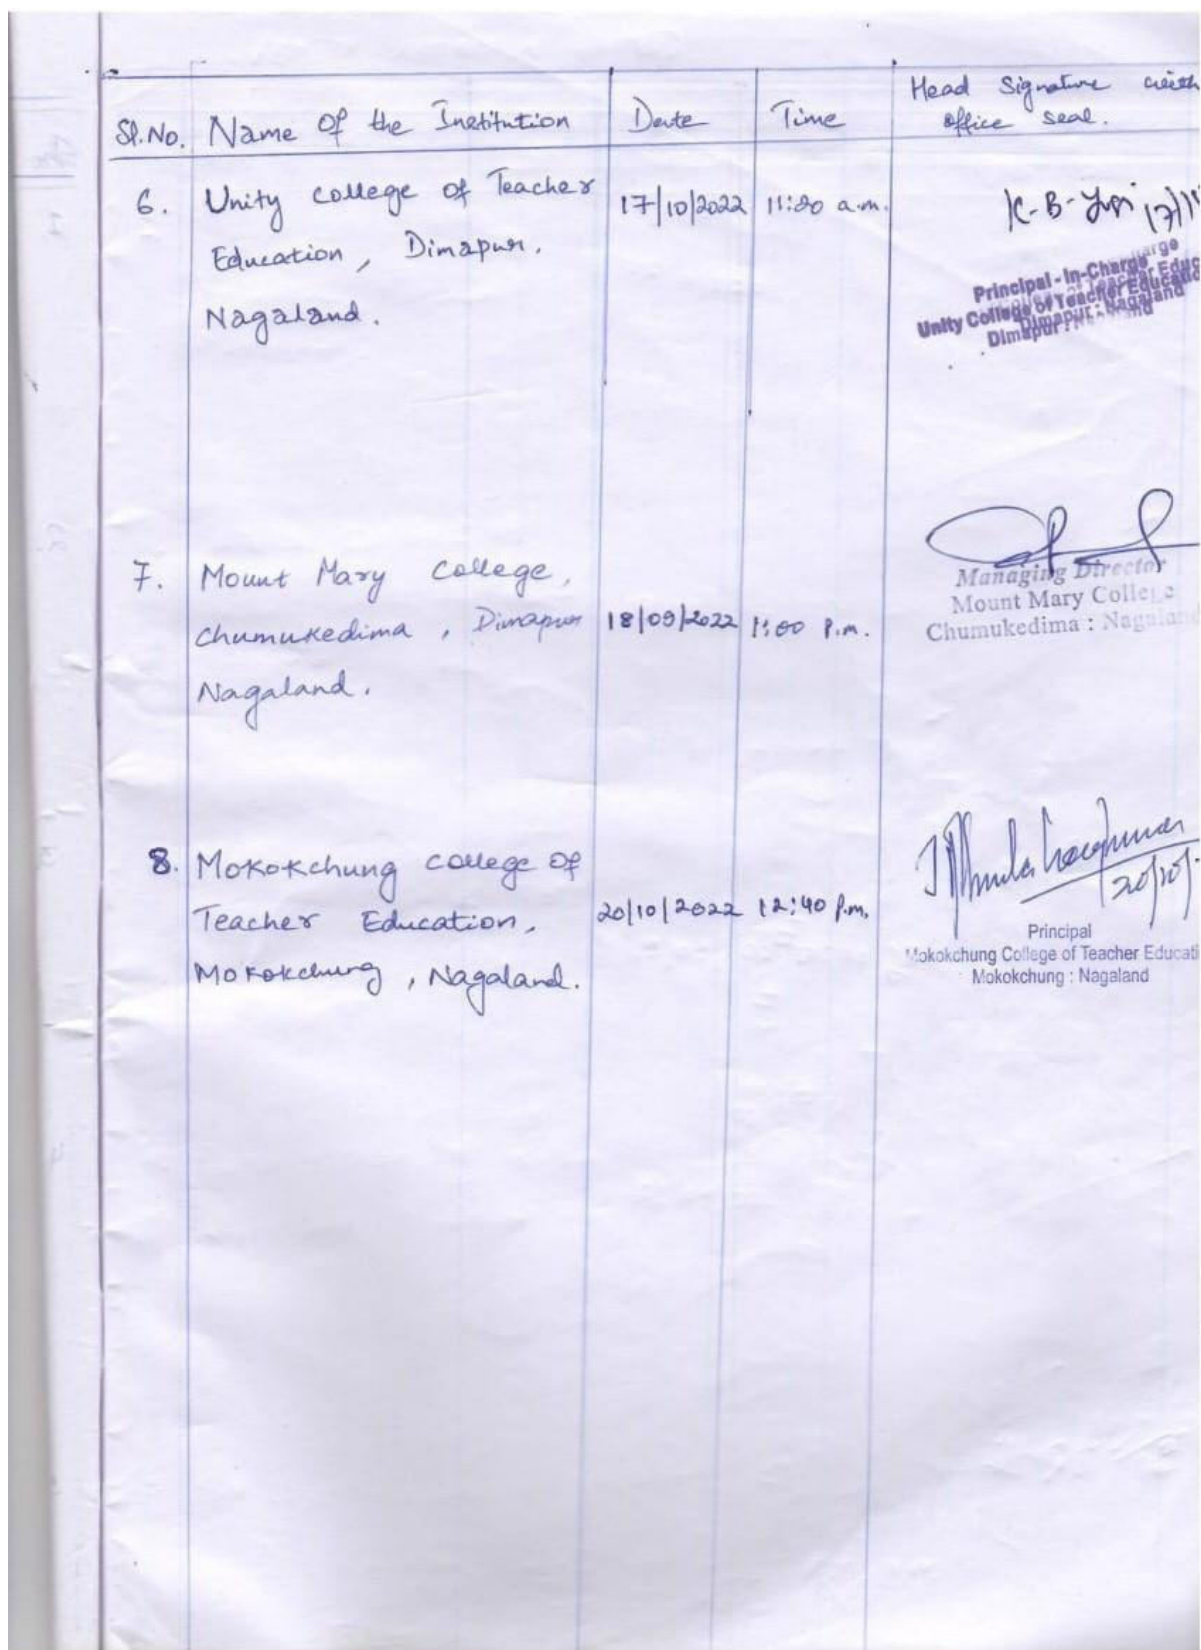 Sl.No. Name of the Institution Date Time Head Signature with
office seal.
6. Unity college of Teacher 17/10/2022 11:20 a.m.
Education, Dimapur.
Nagaland.
K-B-
Principal - In-Charge
Unity College of Teacher Educatio
Dimapur : Nagaland
7. Mount Mary College,
Chumukedima, Dimapur 18/09/2022 1:00 P.m.
Nagaland.
Managing Director
Mount Mary College
Chumukedima : Nagaland
8. Mokokchung College of
Teacher Education, 20/10/2022 12:40 P.m.
Mokokchung, Nagaland.
20/10/
Principal
Mokokchung College of Teacher Educati
Mokokchung : Nagaland